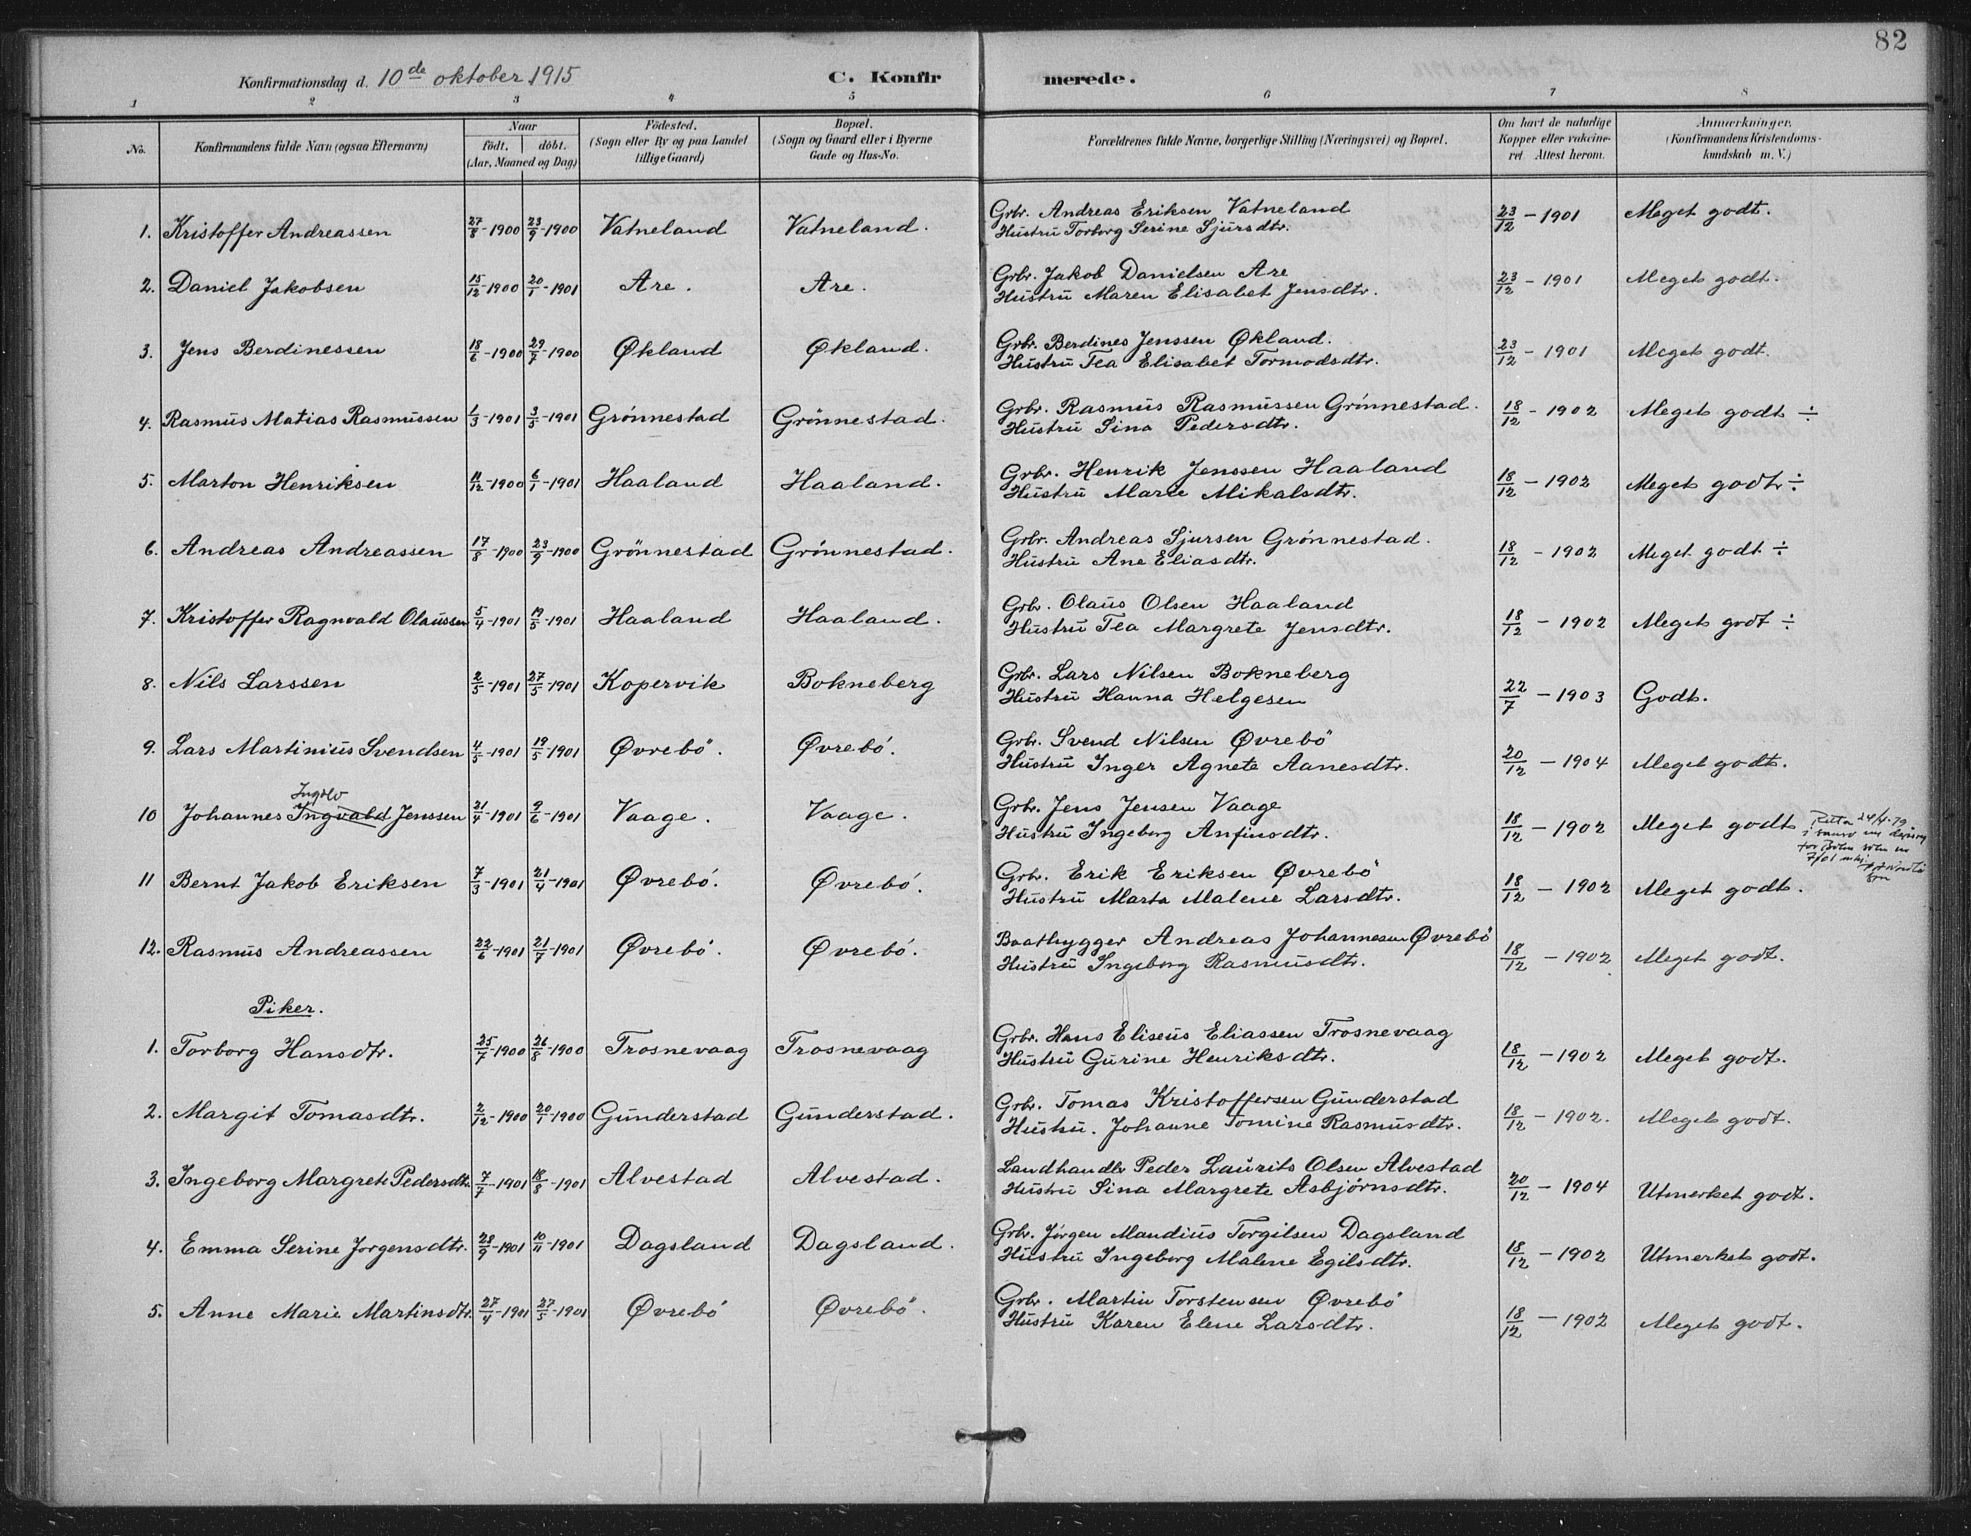 82
Konfirmationsdag d. 10de oktober 1915 C. Konfirmerede.
1 2 3 4 5 6 7 8
No. Konfirmandens fulde Navn (ogsaa Efternavn) Naar födt. döbt. (Aar, Maaned og Dag) Födested. (Sogn eller By og paa Landet tillige Gaard) Bopæl. (Sogn og Gaard eller i Byerne Gade og Hus-No. Forældrenes fulde Navne, borgerlige Stilling (Næringsvei) og Bopæl. Om havt de naturlige Kopper eller vakcineret. Attest herom. Anmærkninger. (Konfirmandens Kristendomskundskab m. V.)
1. Kristoffer Andreassen 27/8-1900 23/9-1900 Vatneland Vatneland. Grbr. Andreas Eriksen Vatneland 23/12 - 1901 Meget godt.
Hustru Torborg Serine Sjursdtr.
2. Daniel Jakobsen 15/12-1900 20/1-1901 Are. Are. Grbr. Jakob Danielsen Are 23/12 - 1901 Meget godt.
Hustru Maren Elisabet Jensdtr.
3. Jens Berdinessen 18/6-1900 29/7-1900 Økland Økland. Grbr. Berdines Jenssen Økland. 23/12 - 1901 Meget godt.
Hustru Tea Elisabet Tormodsdtr.
4. Rasmus Matias Rasmussen 1/3-1901 3/5-1901 Grönnestad Grönnestad. Grbr. Rasmus Rasmussen Grönnestad. 18/12 - 1902 Meget godt ÷
Hustru Sina Pedersdtr.
5. Marton Henriksen 11/12-1900 6/1-1901 Haaland Haaland. Grbr. Henrik Jenssen Haaland 18/12 - 1902 Meget godt ÷
Hustru Marie Mikalsdtr.
6. Andreas Andreassen 17/8-1900 23/9-1900 Grönnestad Grönnestad. Grbr. Andreas Sjursen Grönnestad. 18/12 - 1902 Meget godt ÷
Hustru Ane Eliasdtr.
7. Kristoffer Ragnvald Olaussen 5/4-1901 19/5-1901 Haaland Haaland. Grbr. Olaus Olsen Haaland 18/12 - 1902 Meget godt ÷
Hustru Tea Margrete Jensdtr.
8. Nils Larssen 2/5-1901 27/5-1901 Kopervik Bokneberg Grbr. Lars Nilsen Bokneberg 22/7 - 1903 Godt.
Hustru Hanna Helgesen
9. Lars Martinius Svendsen 4/5-1901 19/5-1901 Øvrebö. Øvrebö. Grbr. Svend Nilsen Øvrebö 20/12 - 1904 Meget godt.
Hustru Inger Agnete Aanesdtr.
Ingolv
10 Johannes Ingvald Jenssen 21/4-1901 9/6-1901 Vaage. Vaage. Grbr. Jens Jensen Vaage 18/12 - 1902 Meget godt
Hustru Ingeborg Anfinsdtr.
11 Bernt Jakob Eriksen 7/3-1901 21/4-1901 Øvrebö. Øvrebö. Grbr. Erik Eriksen Øvrebö 18/12 - 1902 Meget godt.
Hustru Marta Malene Larsdtr.
12. Rasmus Andreassen 22/6-1901 21/7-1901 Øvrebö. Øvrebö. Baatbygger Andreas Johannesen Øvrebö 18/12 - 1902 Meget godt.
Hustru Ingeborg Rasmusdtr.
Piker.
1. Torborg Hansdtr. 25/7-1900 26/8-1900 Trosnevaag Trosnevaag Grbr. Hans Eliseus Eliassen Trosnevaag 18/12 - 1902 Meget godt.
Hustru Gurine Henriksdtr.
2. Margit Tomasdtr. 2/12-1900 20/1-1900 Gunderstad Gunderstad. Grbr. Tomas Kristoffersen Gunderstad 18/12 - 1902. Meget godt.
Hustru. Johanne Tomine Rasmusdtr.
3. Ingeborg Margrete Pedersdtr. 7/7-1901 18/8-1901 Alvestad Alvestad. Landhandlr Peder Laurits Olsen Alvestad 20/12 - 1904 Utmerket godt.
Hustru Sina Margrete Asbjørnsdtr.
4. Emma Serine Jørgensdtr. 28/9-1901 10/11-1901 Dagsland Dagsland. Grbr. Jørgen Mandius Torgilsen Dagsland 18/12 - 1902 Utmerket godt.
Hustru Ingeborg Malene Egilsdtr.
5. Anne Marie Martinsdtr. 27/4-1901 27/5-1901 Øvrebö Øvrebö. Grbr. Martin Torstensen Øvrebö 18/12 - 1902 Meget godt.
Hustru Karen Elene Larsdtr.